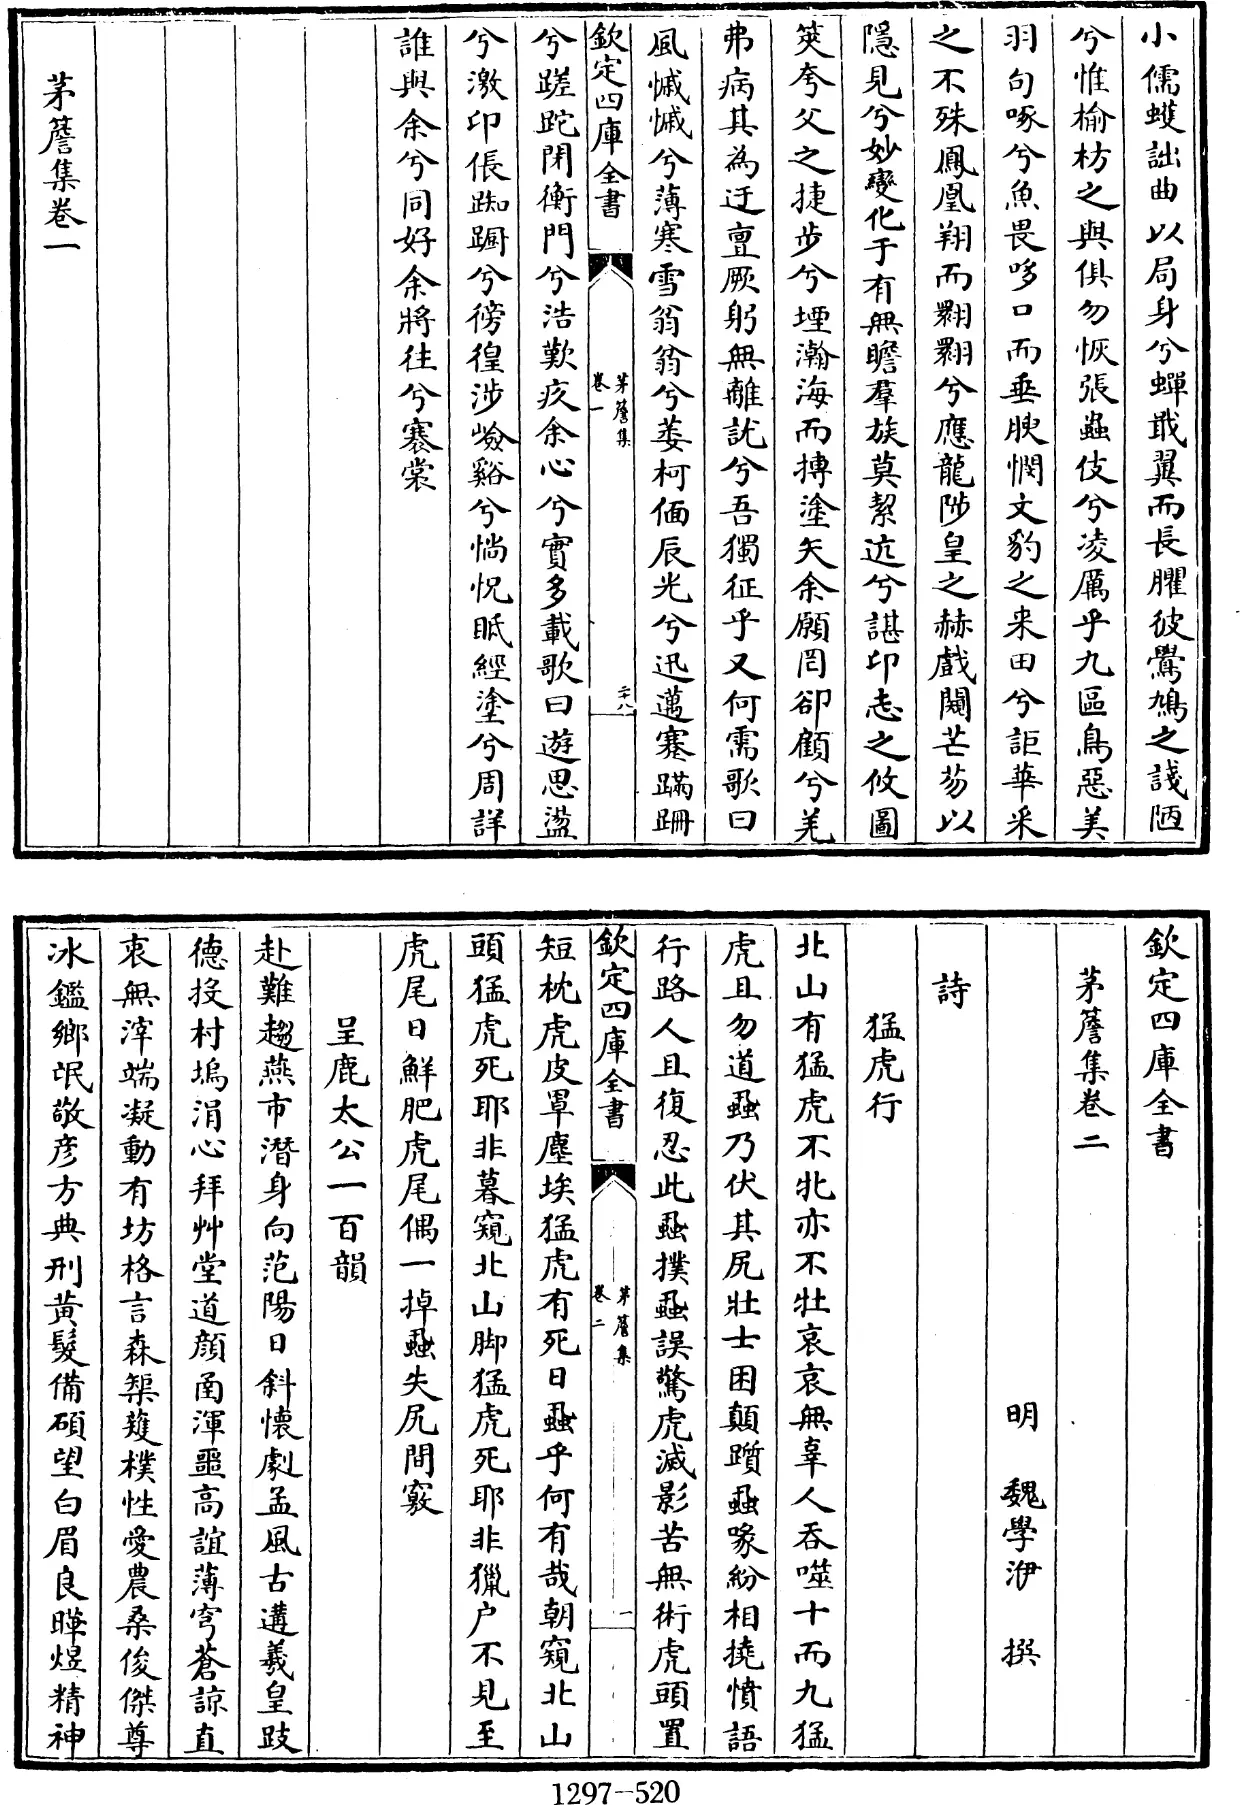 小儒蠖詘曲以局身兮蟬戢翼而長臞彼鷽鳩之諓陋
兮惟榆枋之與俱勿恢張蟲伎兮凌厲乎九區鳥惡美
羽句啄兮魚畏哆口而垂腴憫文豹之来田兮詎華采
之不殊鳳凰翔而翾翾兮應龍陟皇之赫戲闚芒芴以
隱見兮妙變化于有無瞻羣族莫絜迒兮諶卬志之攸圖
筴夸父之捷步兮堙瀚海而摶塗矢余願罔卻顧兮羌
弗病其為迂亶厥躬無離訧兮吾獨征乎又何需歌曰
風慽慽兮薄寒雪翁翁兮萎柯偭辰光兮迅邁蹇蹣跚
欽定四庫全書
茅簷集
卷一
二十八
兮蹉跎閉衡門兮浩歎疚余心兮實多載歌曰遊思溢
兮激卬倀踟蹰兮徬徨涉嶮谿兮惝怳眡經塗兮周詳
誰與余兮同好余將往兮褰裳
茅簷集卷一
欽定四庫全書
茅簷集卷二
明 魏學洢 撰
詩
猛虎行
北山有猛虎不牝亦不牡哀哀無辜人吞噬十而九猛
虎且勿道蝨乃伏其尻壯士困顛躓蝨喙紛相撓憤語
行路人且復忍此蝨撲蝨誤驚虎滅影苦無術虎頭置
欽定四庫全書
茅簷集
卷二
一
短枕虎皮罩塵埃猛虎有死日蝨乎何有哉朝窺北山
頭猛虎死耶非暮窺北山脚猛虎死耶非獵户不見至
虎尾日鮮肥虎尾偶一掉蝨失尻間竅
呈鹿太公一百韻
赴難趨燕市潛身向范陽日斜懷劇孟風古遘羲皇跂
德投村塢涓心拜艸堂道顔㐭渾噩高誼薄穹蒼諒直
衷無滓端凝動有坊格言森榘矱樸性愛農桑俊傑尊
冰鑑鄉氓敬彦方典刑黃髮備碩望白眉良曄煜精神
1297-520